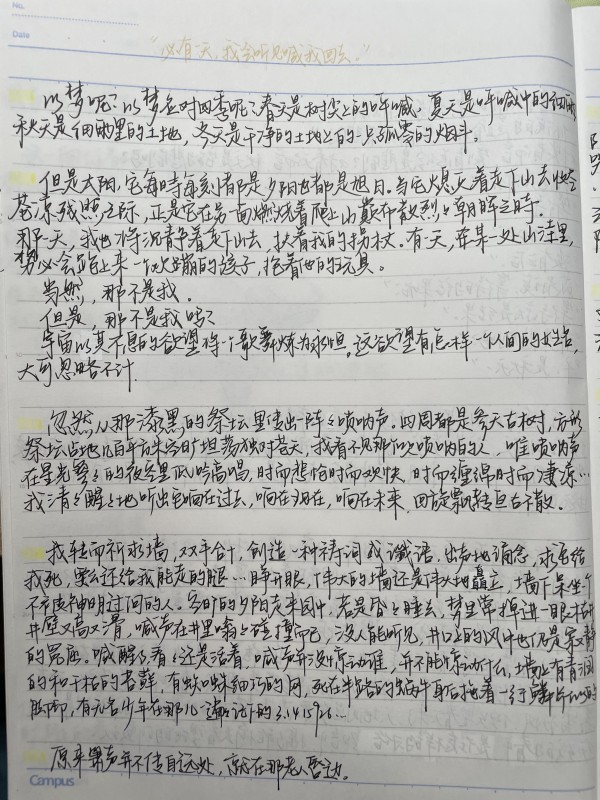 No.
Date
“必有一天，我会听见喊我回去。”
以梦呢？以梦应对四季呢？春天是树尖上的呼喊，夏天是呼喊中的细雨
秋天是细雨里的土地，冬天是干净的土地上的一点孤零的烟斗。
但是太阳，它每时每刻都是夕阳也都是旭日。当它熄灭着走下山去收尽
苍凉残照之际，正是它在另一面燃烧着爬上山巅布散烈烈朝晖之时。
那一天，我也将沉静着走下山去，扶着我的拐杖。有一天，在某一处山洼里，
势必会跑上来一个欢蹦的孩子，抱着他的玩具。
当然，那不是我。
但是，那不是我吗？
宇宙以其不息的欲望将一个歌舞炼为永恒。这欲望有怎样一个人间的姓名，
大可忽略不计。
忽然从那漆黑的祭坛里传出一阵阵唢呐声。四周都是参天古树，方形
祭坛占地几百平方米空旷坦荡独对苍天，我看不见那个吹唢呐的人，唯唢呐声
在星光寥寥的夜空里低吟高唱，时而悲怆时而欢快，时而缠绵时而凄凉…
我清清醒醒地听出它响在过去，响在现在，响在未来，回旋飘转亘古不散。
我转而祈求墙，双手合十，创造一种祷词或谶语，出声地诵念，求它给
我死，要么还给我能走的腿…睁开眼，伟大的墙还是伟大地矗立，墙下呆坐个
不被神明过问的人。空旷的夕阳走来园中，若是昏昏睡去，梦里常掉进一眼枯井
井壁又高又滑，喊声在井里嗡嗡碰撞而已，没人能听见，井口上的风中也仍是寂静
的冤屈。喊醒了，看看还是活着，喊声并没惊动谁，并不能惊动什么，墙上有青润
的和干枯的苔藓，有蜘蛛细巧的网，死在半路的蜗牛身后拖着一行鳞片似的
脚印，有无名少年在那儿一遍遍记下的3.1415926…
原来罪声并不传自远处，就在那老人唇边。
Campus